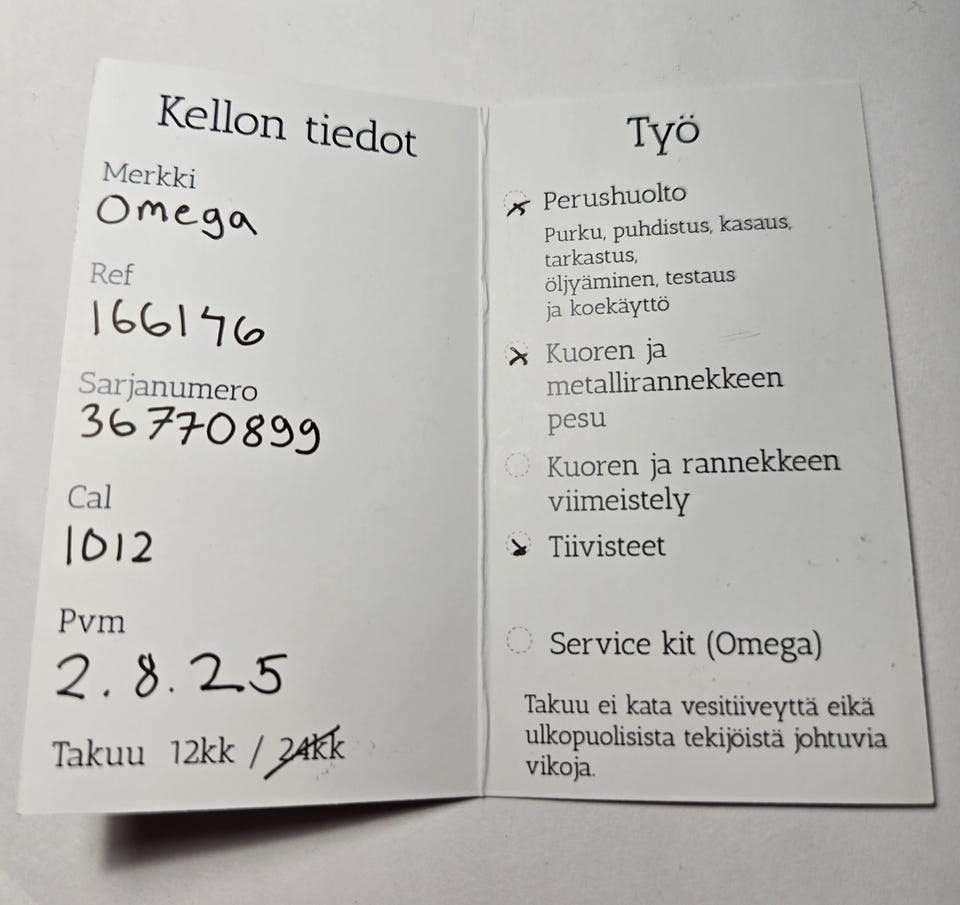 Kellon tiedot
Merkki
Omega
Ref
166176
Sarjanumero
36770899
Cal
1012
Pvm
2.8.25
Takuu 12kk / 24kk
Työ
Perushuolto
Purku, puhdistus, kasaus,
tarkastus,
öljyäminen, testaus
ja koekäyttö
Kuoren ja
metallirannekkeen
pesu
Kuoren ja rannekkeen
viimeistely
Tiivisteet
Service kit (Omega)
Takuu ei kata vesitiiveyttä eikä
ulkopuolisista tekijöistä johtuvia
vikoja.